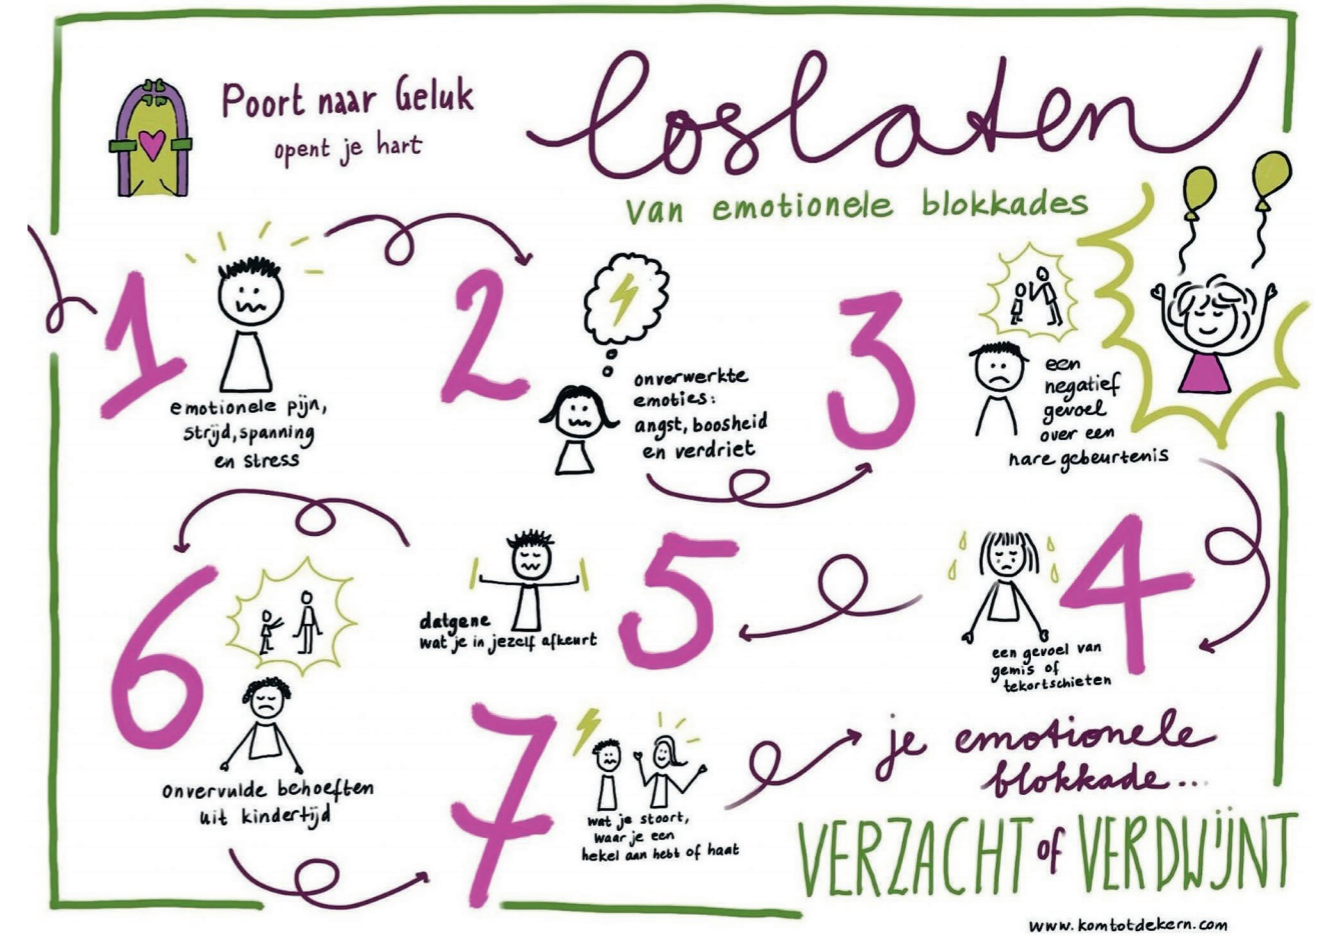 Poort naar Geluk
opent je hart
loslaten
van emotionele blokkades
1
emotionele pijn,
strijd, spanning
en stress
2
onverwerkte
emoties:
angst, boosheid
en verdriet
3
een
negatief
gevoel
over een
nare gebeurtenis
4
een gevoel van
gemis of
tekortschieten
5
datgene
wat je in jezelf afkeurt
6
onvervulde behoeften
uit kindertijd
7
wat je stoort,
waar je een
hekel aan hebt of haat
je emotionele
blokkade...
VERZACHT of VERDWIJNT
www.komtotdekern.com